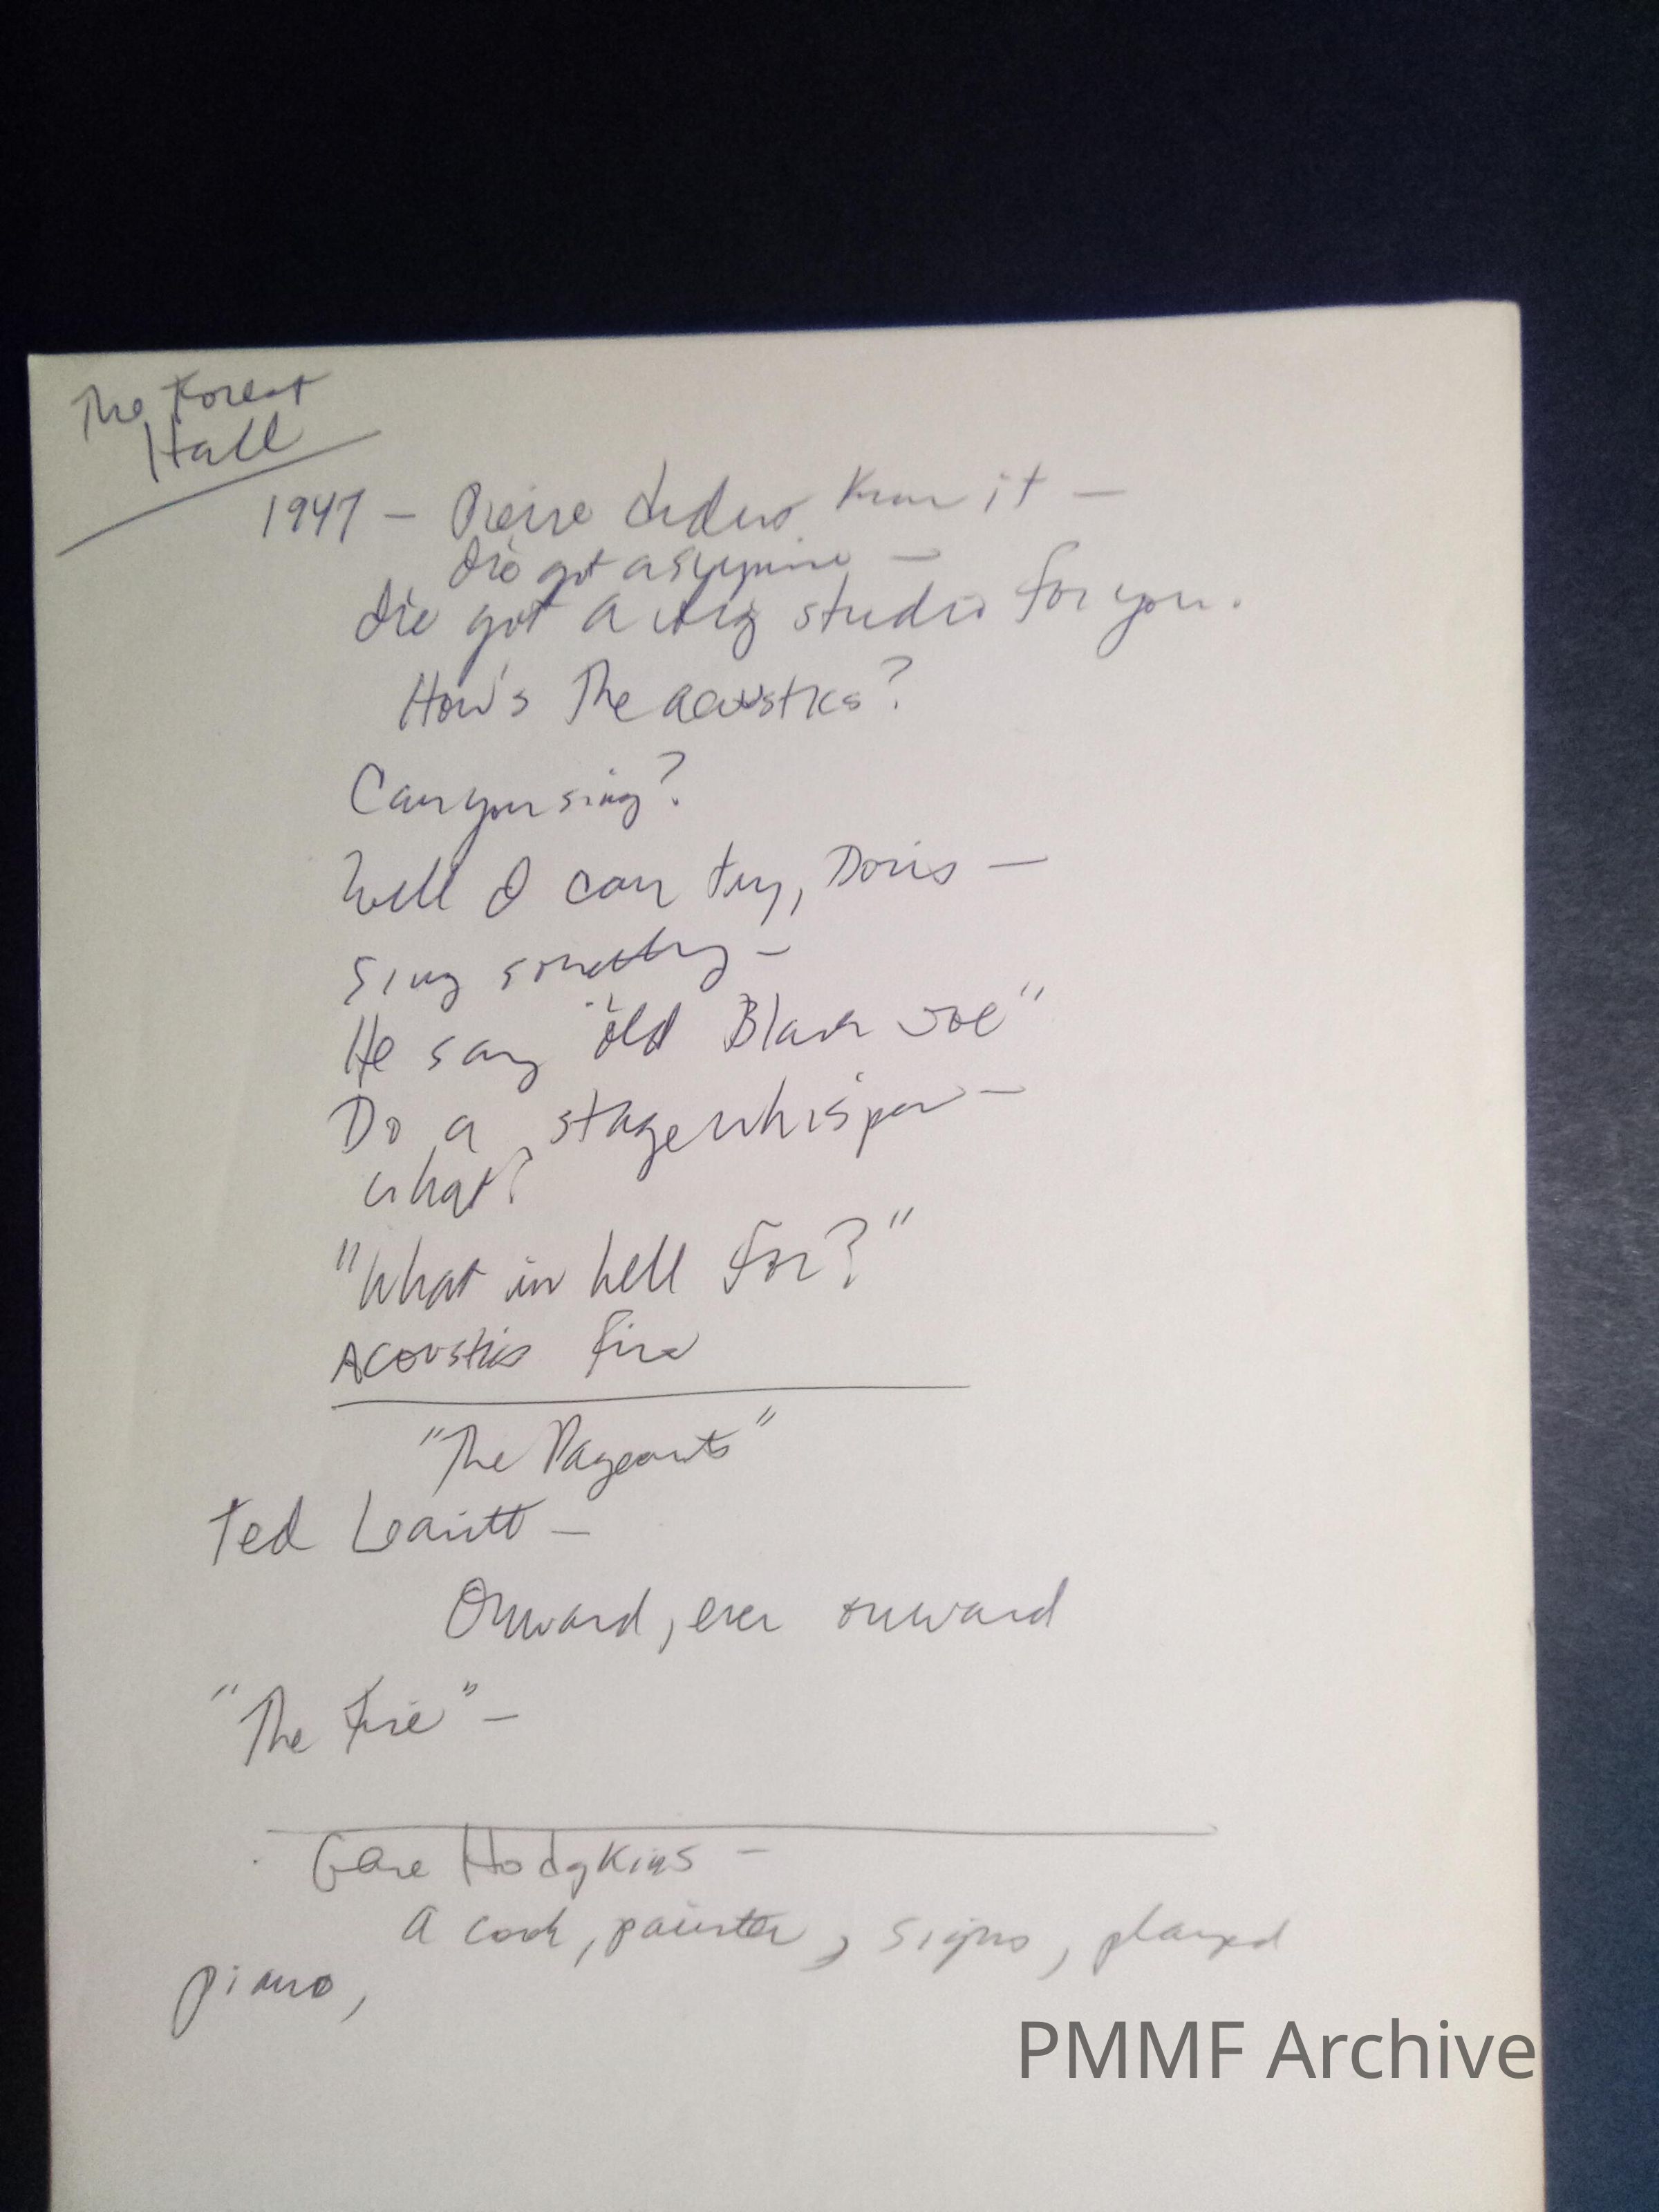 The Forest
Hall
1947 – Pierre knew it –
I've got a gymn –
I've got a big studio for you.
How's the acoustics?
Can you sing?
Well I can try, Doris –
Sing something –
He sang "Old Black Joe"
Do a stage whisper –
What?
"What in hell for?"
Acoustics fine
"The Pageants"
Ted Leavitt –
Onward, ever onward
"The Fire" –
Hodgkins –
A cook, painter, signs, played
piano,
PMMF Archive